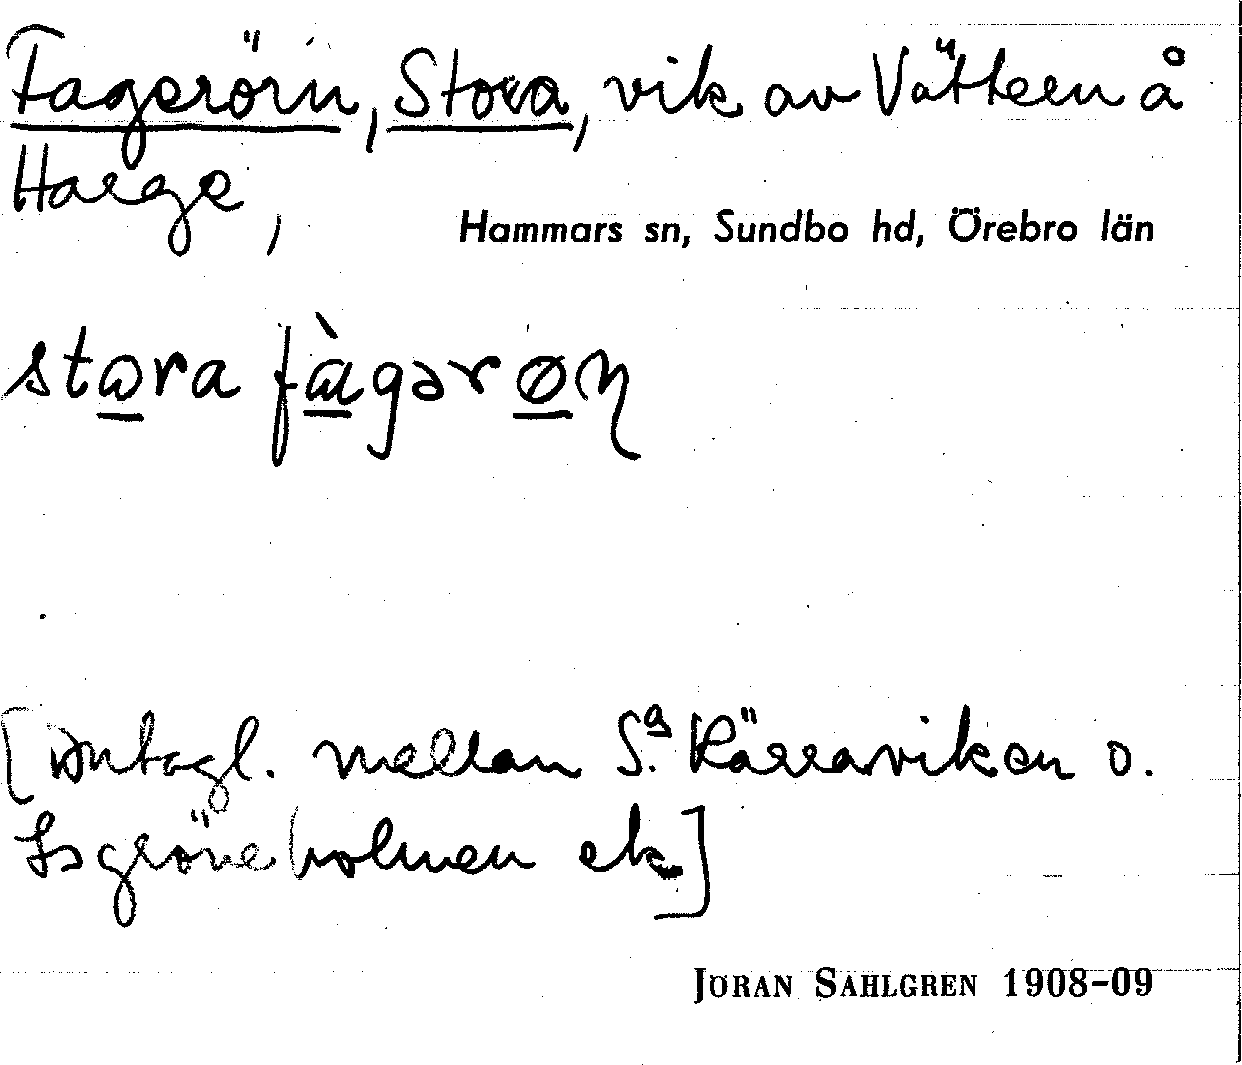 Fagerörn, Stora, vik av Vättern å
Harge,
Hammars sn, Sundbo hd, Örebro län
stωra fàgər øɳ
[Antagl. mellan S:a Kärraviken o.
holmen ek]
JÖRAN SAHLGREN 1908-09